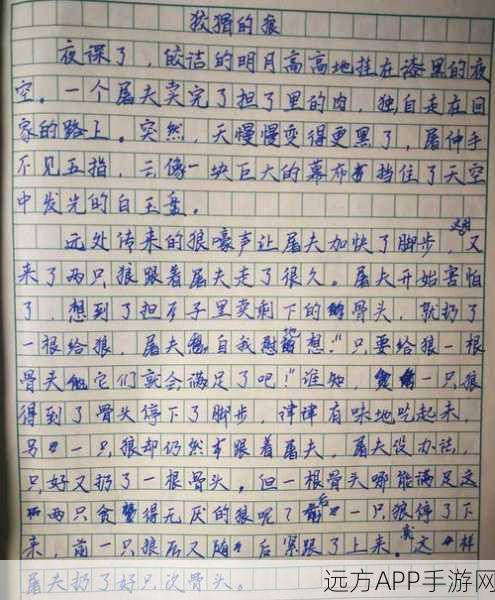 狡猾的狼
夜深了，皎洁的明月高高地挂在漆黑的夜
空。一个屠夫卖完了担子里的肉，独自走在回
家的路上。突然，天慢慢变得更黑了，屠伸手
不见五指，云像一块巨大的幕布挡住了天空
中发光的白玉盘。
远处传来的狼嚎声让屠夫加快了脚步，又
来了两只狼跟着屠夫走了很久。屠夫开始害怕
了，想到了担子里卖剩下的骨头，就扔了
一根给狼，屠夫自我慰想："只要给狼一根
骨头它们就会满足了吧！"谁知，一只狼
得到了骨头停下了脚步，津津有味地吃起来，
另一只狼却仍然跟着屠夫，屠夫没办法，
只好又扔了一根骨头。但一根骨头哪能满足这
两只贪得无厌的狼呢？后一只狼停了下
来，前一只狼又随后紧跟了上来。就这样
屠夫扔了好几次骨头。
远方APP手游网